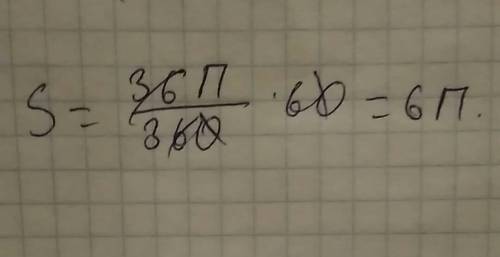 S = 36П/360 · 60 = 6П.